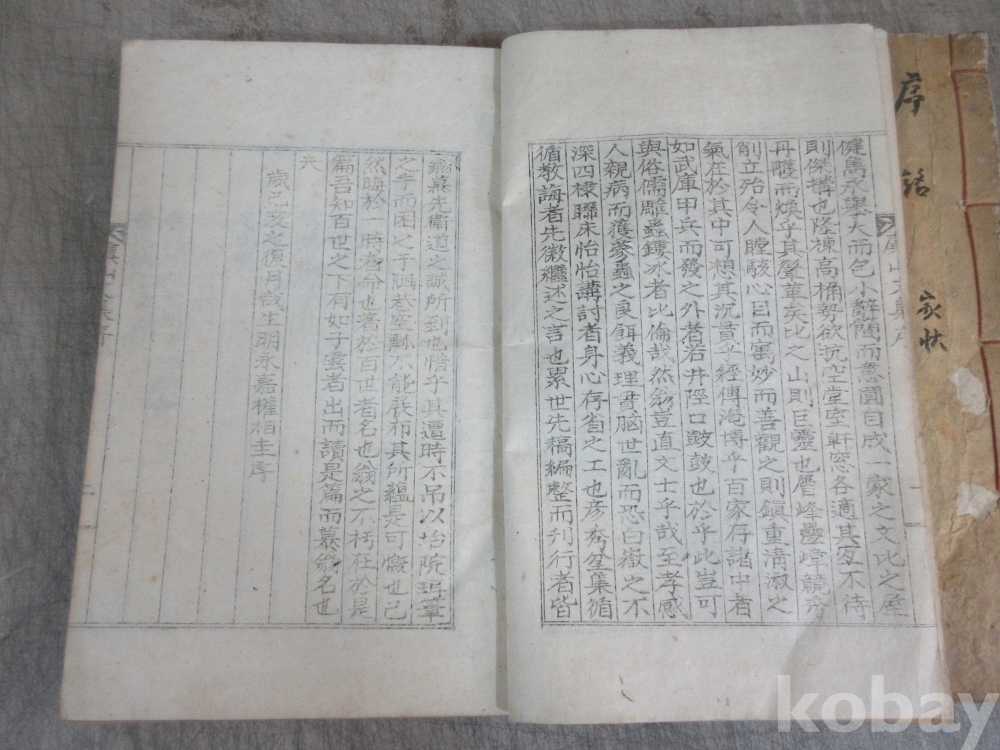 健雋永擧大而包小辭簡而意圓自成一家之文比之屋
則傑搆也隆棟高桷勢欲抗空堂室軒窓各適其宜不待
丹雘而煥乎其聲革矣比之山則巨靈也層峰疊嶂競秀
削立殆令人瞠駭心目而寓妙而善觀之則鎭重淸淑之
氣在於其中可想其沉賁乎經傳淹博乎百家存諸中者
如武庫甲兵而發之外者若井陘口鼓鼓也於乎此豈可
與俗儒雕蟲鏤氷者比倫哉然翁豈直文士乎哉至孝感
人親病而獲蔘蝨之良餌義理胥腦世亂而恐白嶽之不
深四棣聯床怡怡講討者身心存省之工也彦秀坌集循
循敎誨者先徽繼述之言也累世先稿編整而刊行者皆
翁慕先衛道之誠所到也惜乎其遭時不吊以
之手而困之于
然晦於一時者命也著於百世者名也翁之不朽在於是
篇吾知百世之下有如子雲者出而讀是篇而慕翁名也
夫
歲己亥之復月哉生明永嘉權相圭序
序 銘 家狀
kobay